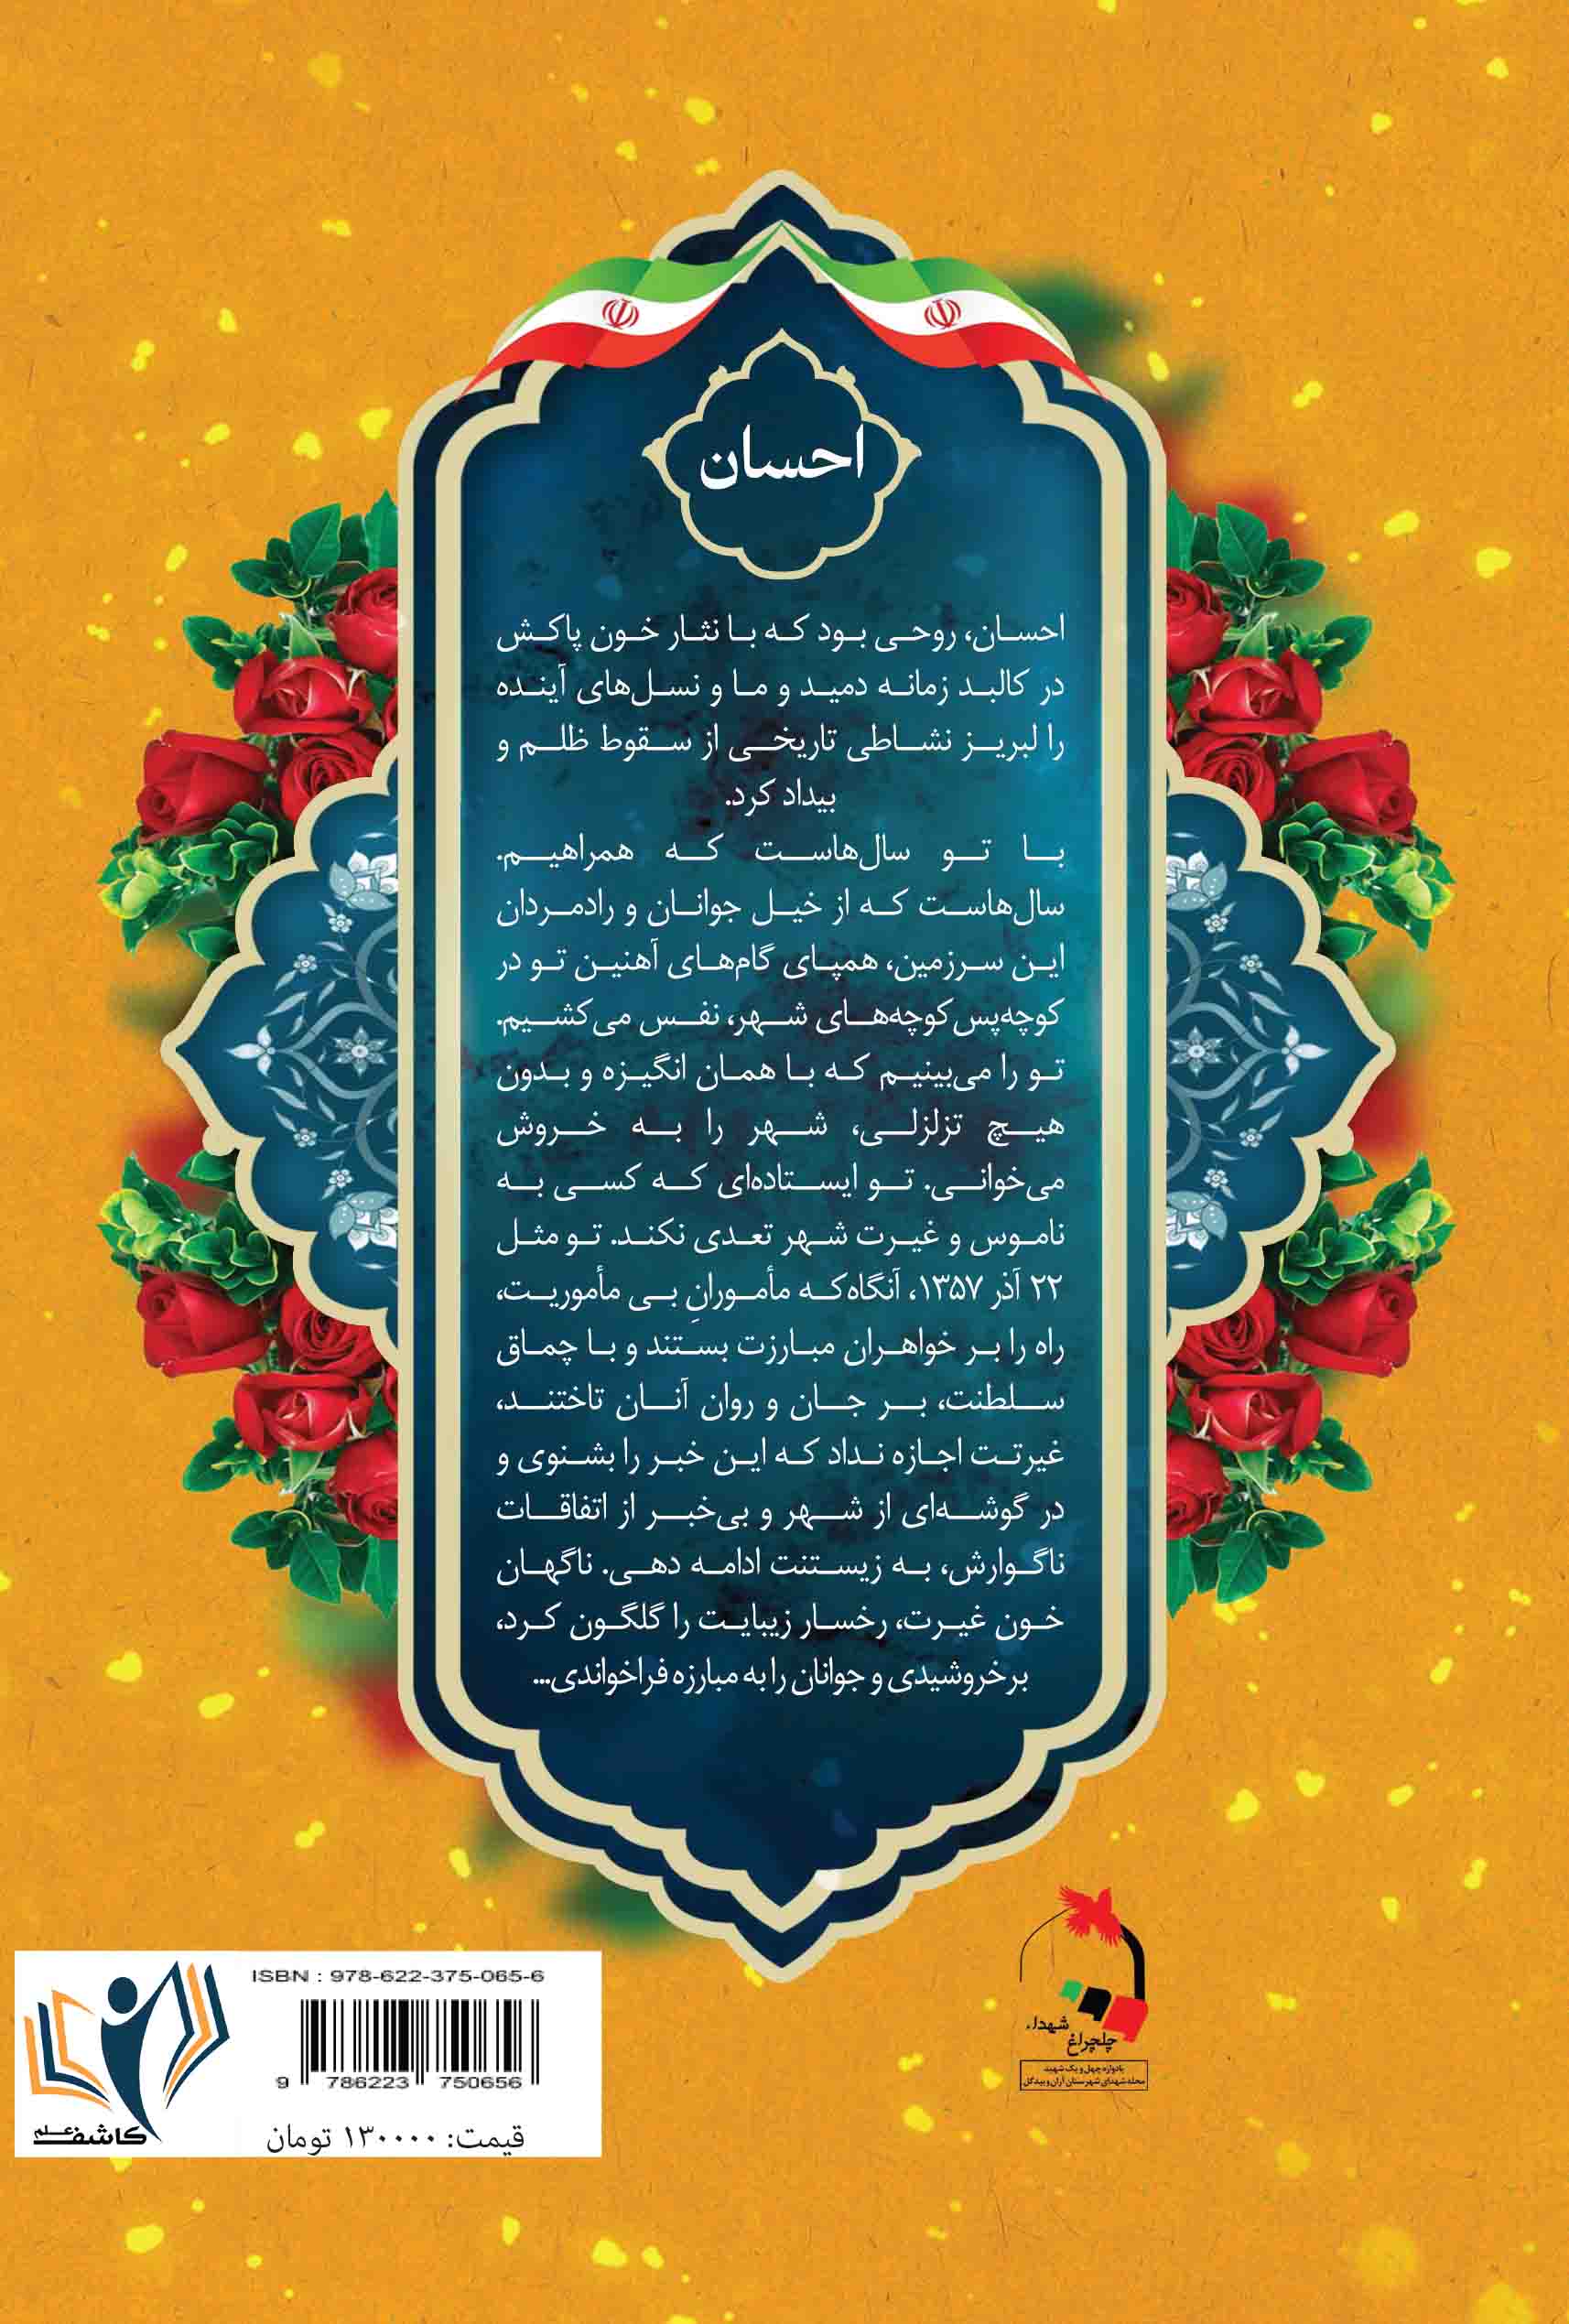 احسان
احسان، روحی بود که با نثار خون پاکش
در کالبد زمانه دمید و ما و نسل‌های آینده
را لبریز نشاطی تاریخی از سقوط ظلم و
بیداد کرد.
با تو سال‌هاست که همراهیم.
سال‌هاست که از خیل جوانان و رادمردان
این سرزمین، همپای گام‌های آهنین تو در
کوچه‌پس‌کوچه‌های شهر، نفس می‌کشیم.
تو را می‌بینیم که با همان انگیزه و بدون
هیچ تزلزلی، شهر را به خروش
می‌خوانی. تو ایستاده‌ای که کسی به
ناموس و غیرت شهر تعدی نکند. تو مثل
۲۲ آذر ۱۳۵۷، آنگاه‌که مأمورانِ بی مأموریت،
راه را بر خواهران مبارزت بستند و با چماق
سلطنت، بر جان و روان آنان تاختند،
غیرتت اجازه نداد که این خبر را بشنوی و
در گوشه‌ای از شهر و بی‌خبر از اتفاقات
ناگوارش، به زیستنت ادامه دهی. ناگهان
خون غیرت، رخسار زیبایت را گلگون کرد،
برخروشیدی و جوانان را به مبارزه فراخواندی...
شهداء
چلچراغ
یادواره چهل و یک شهید
محله شهدای شهرستان آران و بیدگل
ISBN : 978-622-375-065-6
9 786223 750656
قیمت: ۱۳۰۰۰۰ تومان
کاشف علم